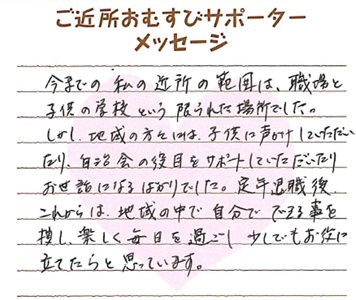 ご近所おむすびサポーター
メッセージ
今までの私の近所の範囲は、職場と
子供の学校という限られた場所でした。
しかし、地域の方々には、子供に声かけしていただい
たり、自治会の役目をサポートしていただいたり
お世話になるばかりでした。定年退職後
これからは、地域の中で自分でできる事を
捜し、楽しく毎日を過ごし少しでもお役に
立てたらと思っています。